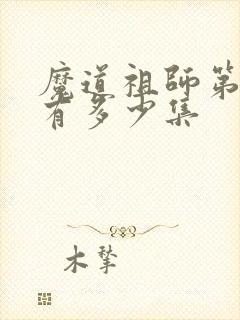 魔道祖师第
有多少集
木擎